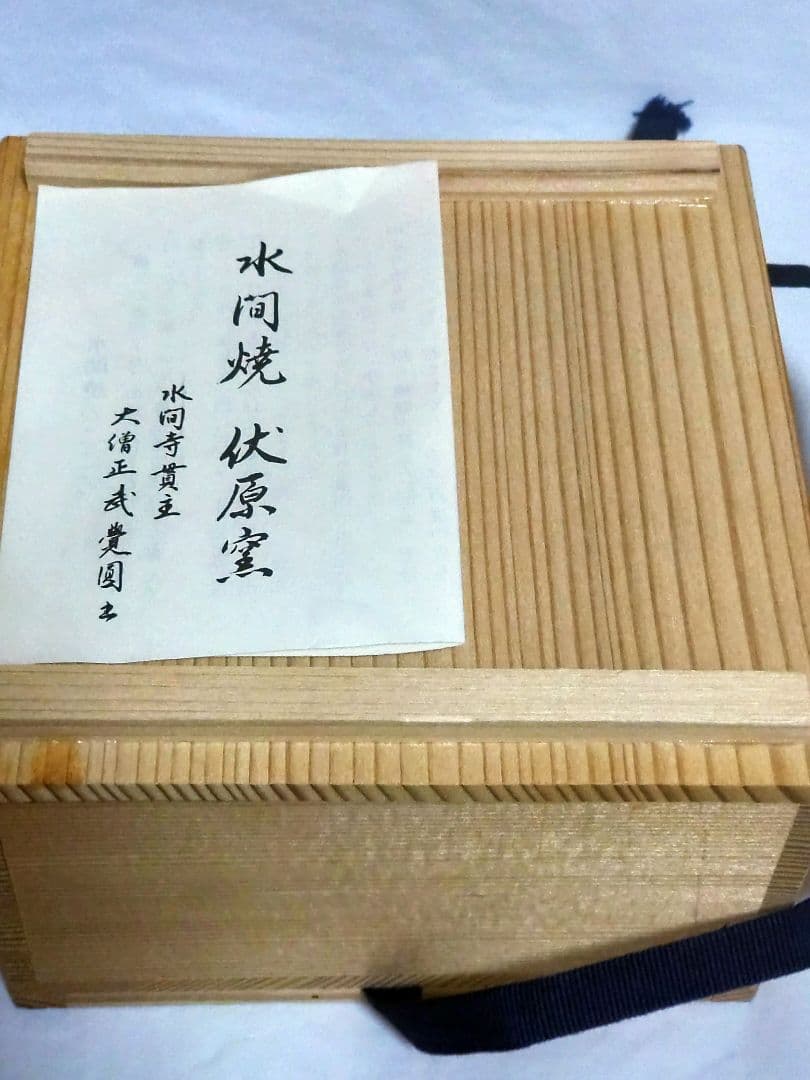 水间焼 伏原窯
水间寺貫主
大僧正武覺圓